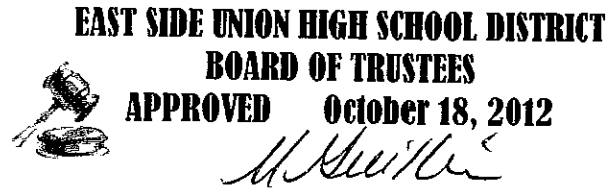 EAST SIDE UNION HIGH SCHOOL DISTRICT
BOARD OF TRUSTEES
APPROVED October 18, 2012